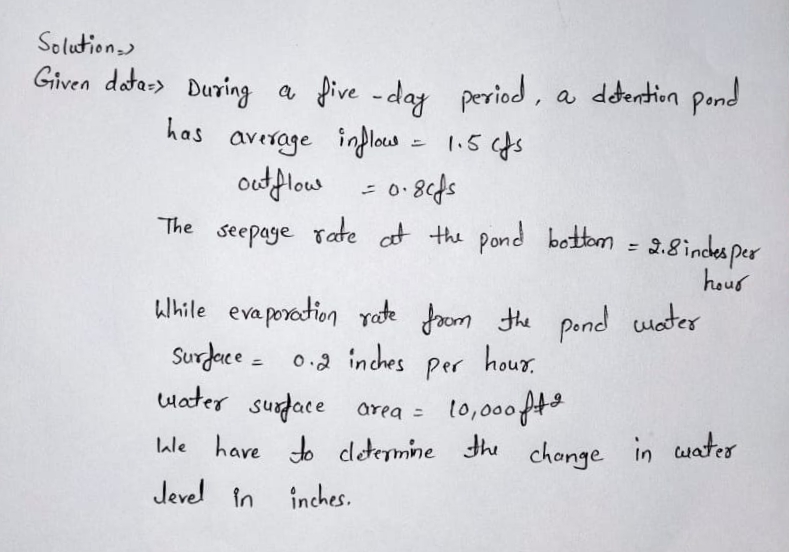 Solution=>
Given data=> During a five-day period, a detention pond
has average inflow = 1.5 cfs
outflow = 0.8cfs
The seepage rate at the pond bottom = 2.8 inches per
hour
While evaporation rate from the pond water
surface = 0.2 inches per hour.
water surface area = 10,000 ft2
We have to determine the change in water
level in inches.